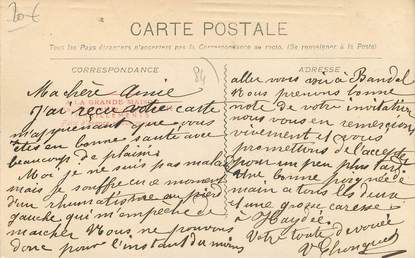 20€
CARTE POSTALE
Tous les Pays étrangers n'acceptent pas la Correspondance au recto. (Se renseigner à la Poste)
CORRESPONDANCE
ADRESSE
84
A LA GRANDE MAISON
Ma chère Amie
J'ai reçu votre carte
m'apprenant que vous
êtes en bonne santé avec
beaucoup de plaisir.
Moi je ne suis pas malade
mais je souffre en ce moment
d'un rhumatisme au pied
gauche qui m'empêche de
marcher Nous ne pouvons
donc pour l'instant du moins
aller vous voir à Bandol
Nous prenons bonne
note de votre invitation
nous vous en remercions
vivement et vous
promettons de l'accepter
pour un peu plus tard
Une bonne poignée de
main à tous les deux
et une grosse caresse
à Haydée.
Votre toute dévouée